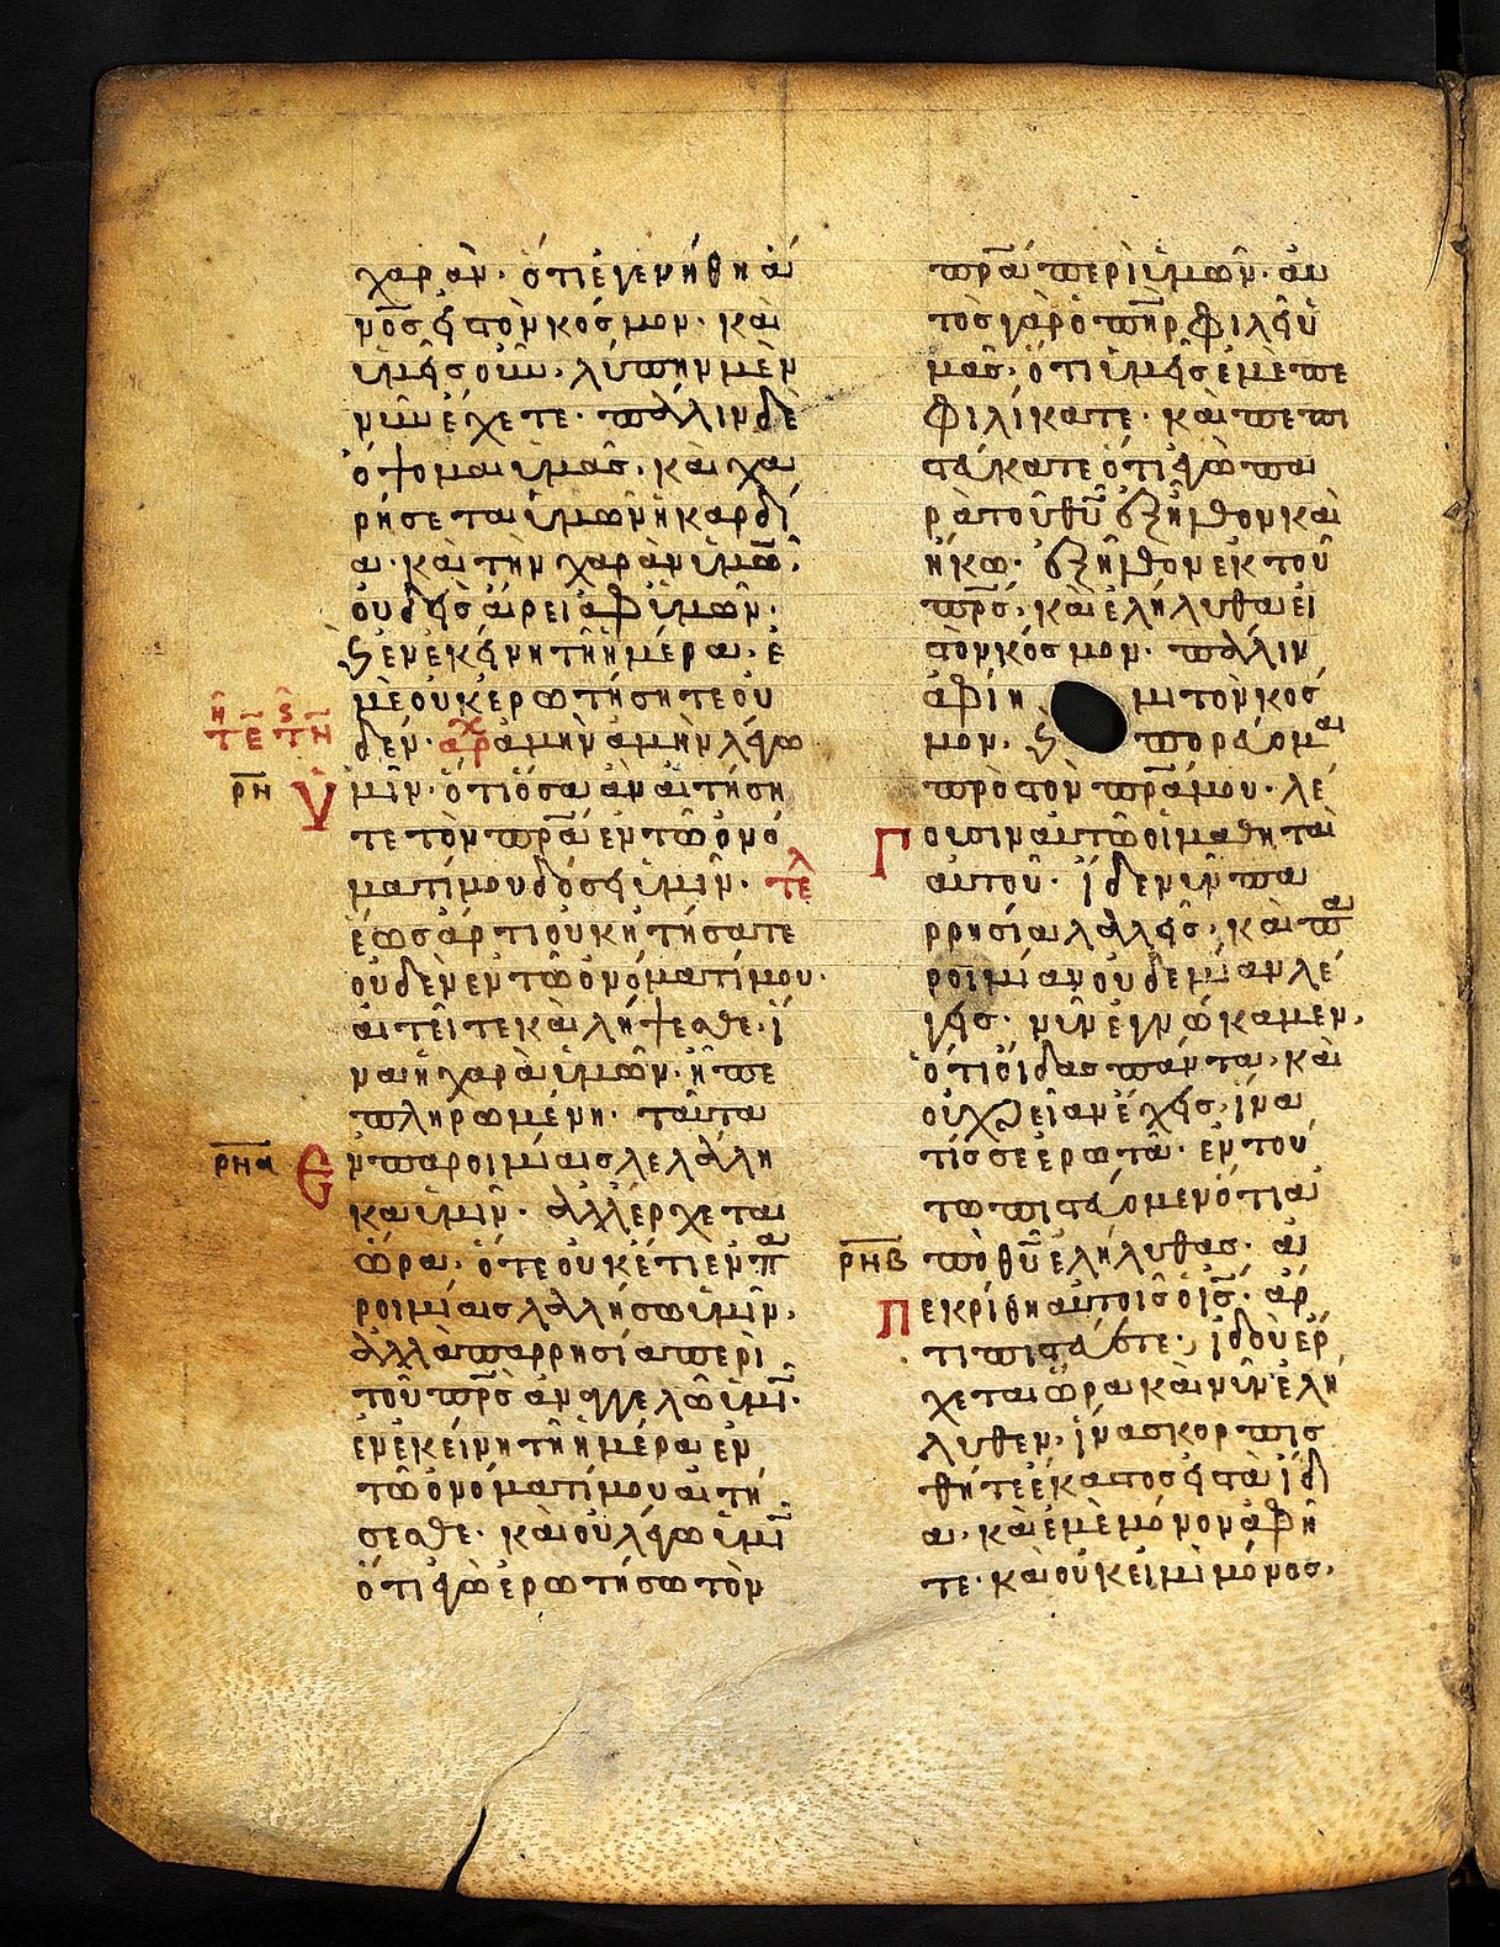 χαράν· ότι ἐγενήθη ἄ
ν̅ο̅σ̅ εἰς τὸν κόσμον· καὶ
ὑμεῖς οὖν, λύπην μὲν
νῦν ἔχετε· πάλιν δὲ
ὄψομαι ὑμᾶς, καὶ χα
ρήσεται ὑμῶν ἡ καρδί
α· καὶ τὴν χαρὰν ὑμῶ̅,
οὐδεὶς αἴρει ἀφ ὑμῶν·
ϗ ἐν ἐκείνη τῆ ἡμέρα· ἐ
μὲ οὐκ ἐρωτήσητε οὐ
δέν· ἀρχ ἀμὴν ἀμὴν λέγω
ρ̅η̅ Ὑμῖν· ὅτι ὅσα ἂν αἰτήση
τε τὸν π̅ρ̅α̅ ἐν τῶ ὀνό
ματί μου δώσει ὑμῖν· τελ
ἕως ἄρτι οὐκ ητήσατε
οὐδὲν ἐν τῶ ὀνόματί μου·
αἰτεῖτε καὶ λήψεσθε, ἵ
να ἡ χαρὰ ὑμῶν· ἦ πε
πληρωμένη· ταῦτα
ρ̅η̅α̅ Ἐν παροιμίαις λελάλη
κα ὑμῖν· ἀλλ ἔρχεται
ὥρα· ὅτε οὐκέτι ἐν πα
ροιμίαις λαλήσω ὑμῖν,
ἀλλὰ παρρησία περὶ
τοῦ π̅ρ̅σ̅ ἀναγγελῶ ὑμῖ̅·
ἐν ἐκείνη τῆ ἡμέρα ἐν
τῶ ὀνόματί μου αἰτή
σεσθε· καὶ οὐ λέγω ὑμῖ̅
ὅτι ἐγὼ ἐρωτήσω τὸν
π̅ρ̅α̅ περὶ ὑμῶν· αὐ
τὸς γὰρ ὁ π̅η̅ρ̅ φιλεῖ ὑ
μᾶς· ὅτι ὑμεῖς ἐμὲ πε
φιλίκατε· καὶ πεπι
στεύκατε ὅτι ἐγὼ πα
ρὰ τοῦ θ̅υ̅ ἐξῆλθον καὶ
ἥκω· ἐξῆλθον ἐκ τοῦ
π̅ρ̅σ̅, καὶ ἐλήλυθα εἰς
τὸν κόσμον· πάλιν
ἀφίημι τὸν κόσ
μον· ϗ πορεύομαι
πρὸς τὸν π̅ρ̅α̅ μου· λέ
Γουσιν αὐτῶ οἱ μαθηταὶ
αὐτοῦ· ἴδε νῦν πα
ρρησία λαλεῖς, καὶ πα
ροιμίαν οὐδεμίαν λέ
γεις· νῦν ἐγνώκαμεν,
ὅτι οἶδας πάντα, καὶ
οὐ χρείαν ἔχεις, ἵνα
τίς σε ἐρωτᾶ· ἐν τού
τω πιστεύομεν ὅτι ἀ
ρ̅η̅β̅ πὸ θ̅υ̅ ἐλήλυθας· ἀ
Πεκρίθη αὐτοῖς ὁ ι̅σ̅· ἄρ
τι πιστεύετε·, ἰδοὺ ἔρ
χεται ὥρα καὶ νῦν ἐλή
λυθεν, ἵνα σκορπισ
θῆτε ἕκαστος εἰς τὰ ἴδι
α, καὶ ἐμὲ μόνον ἀφῆ
τε· καὶ οὐκ εἰμὶ μόνος,